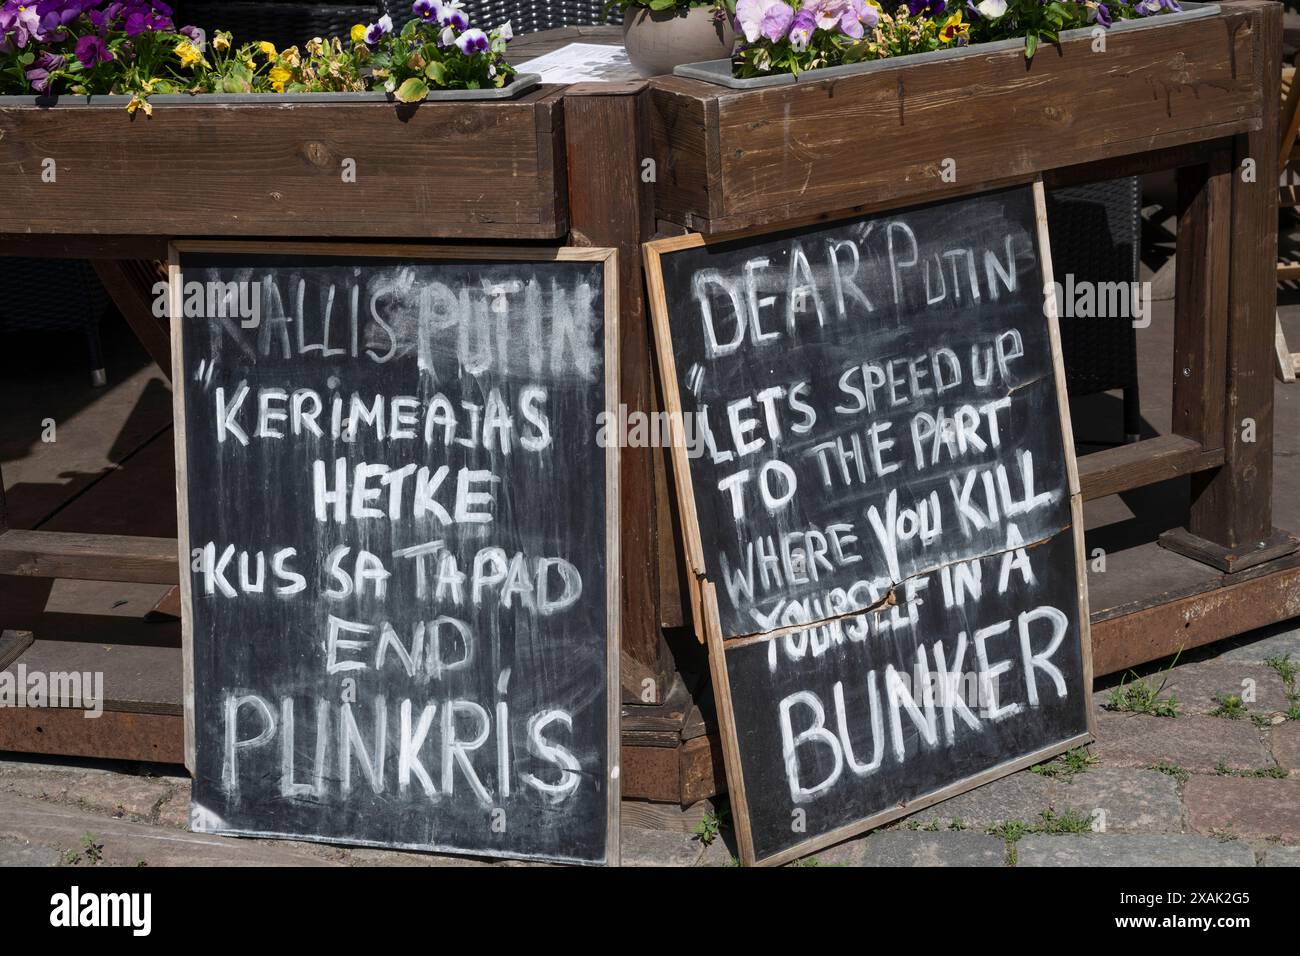 KALLIS "PUTIN
"KERIMEAJAS
HETKE
KUS SA TAPAD
END
PUNKRIS
DEAR "PUTIN
"LETS SPEED UP
TO THE PART
WHERE YOU KILL
YOURSELF IN A
BUNKER
alamy
Image ID: 2XAK2G5
www.alamy.com